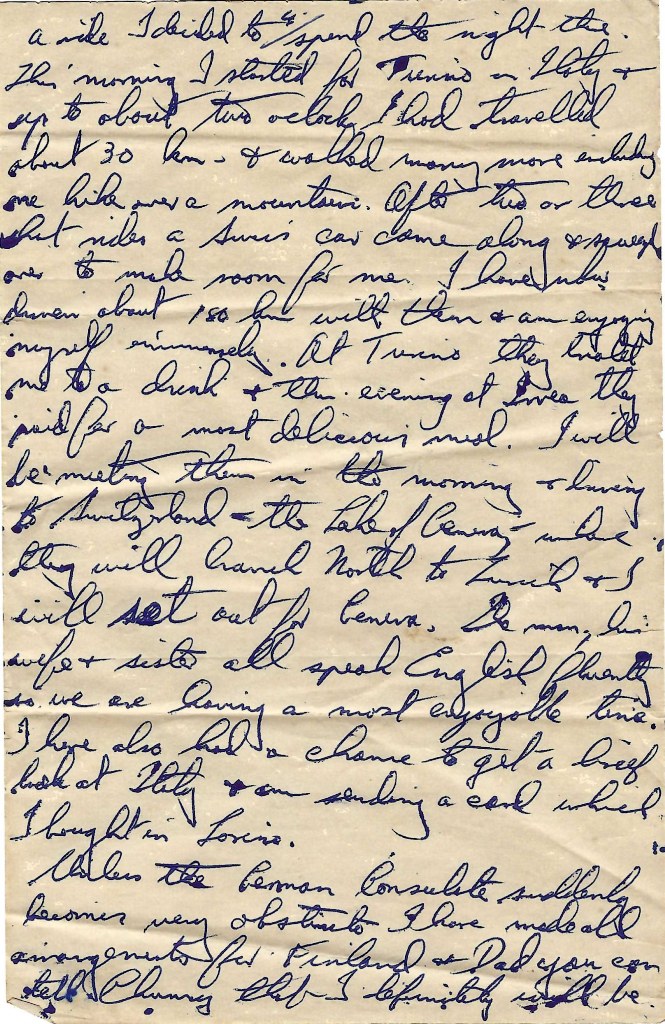 a ride I decided to spend the night there.
This morning I started for Turino in Italy &
up to about two oclock I had travelled
about 30 km. & walked many more including
one hike over a mountain. After two or three
short rides a Swiss car came along & squeezed
over to make room for me. I have now
driven about 180 km with them & am enjoying
myself immensely. At Turino they treated
me to a drink & this evening at Ivrea they
paid for a most delicious meal. I will
be meeting them in the morning & driving
to Switzerland - the Lake of Geneva - where
they will travel North to Zurich & I
will set out for Geneva. The man, his
wife & sister all speak English fluently
so we are having a most enjoyable time.
I have also had a chance to get a brief
look at Italy & am sending a card which
I bought in Torino.
Unless the German Consulate suddenly
becomes very obstinate I have made all
arrangements for Finland & Dad you can
tell that I definitely will be